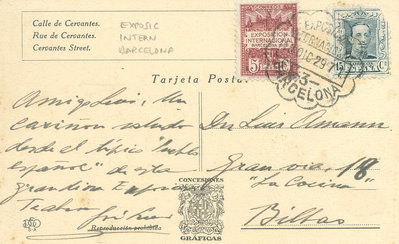 Calle de Cervantes.
Rue de Cervantes.
Cervantes Street.
EXPOSIC
INTERN
BARCELONA
EXPOSICIÓN
INTERNACIONAL
5 CTS
15 Cs
ESPAÑA
DIC 29
3
BARCELONA
Tarjeta Postal
Amigo Luis, Un
cariñoso saludo
desde el típico "pueblo
español" de esta
grandiosa Exposición
Don Luis Amann
Gran via, 18
"La Cocina"
Bilbao
CONCESIONES
GRÁFICAS
Reproducción prohibida